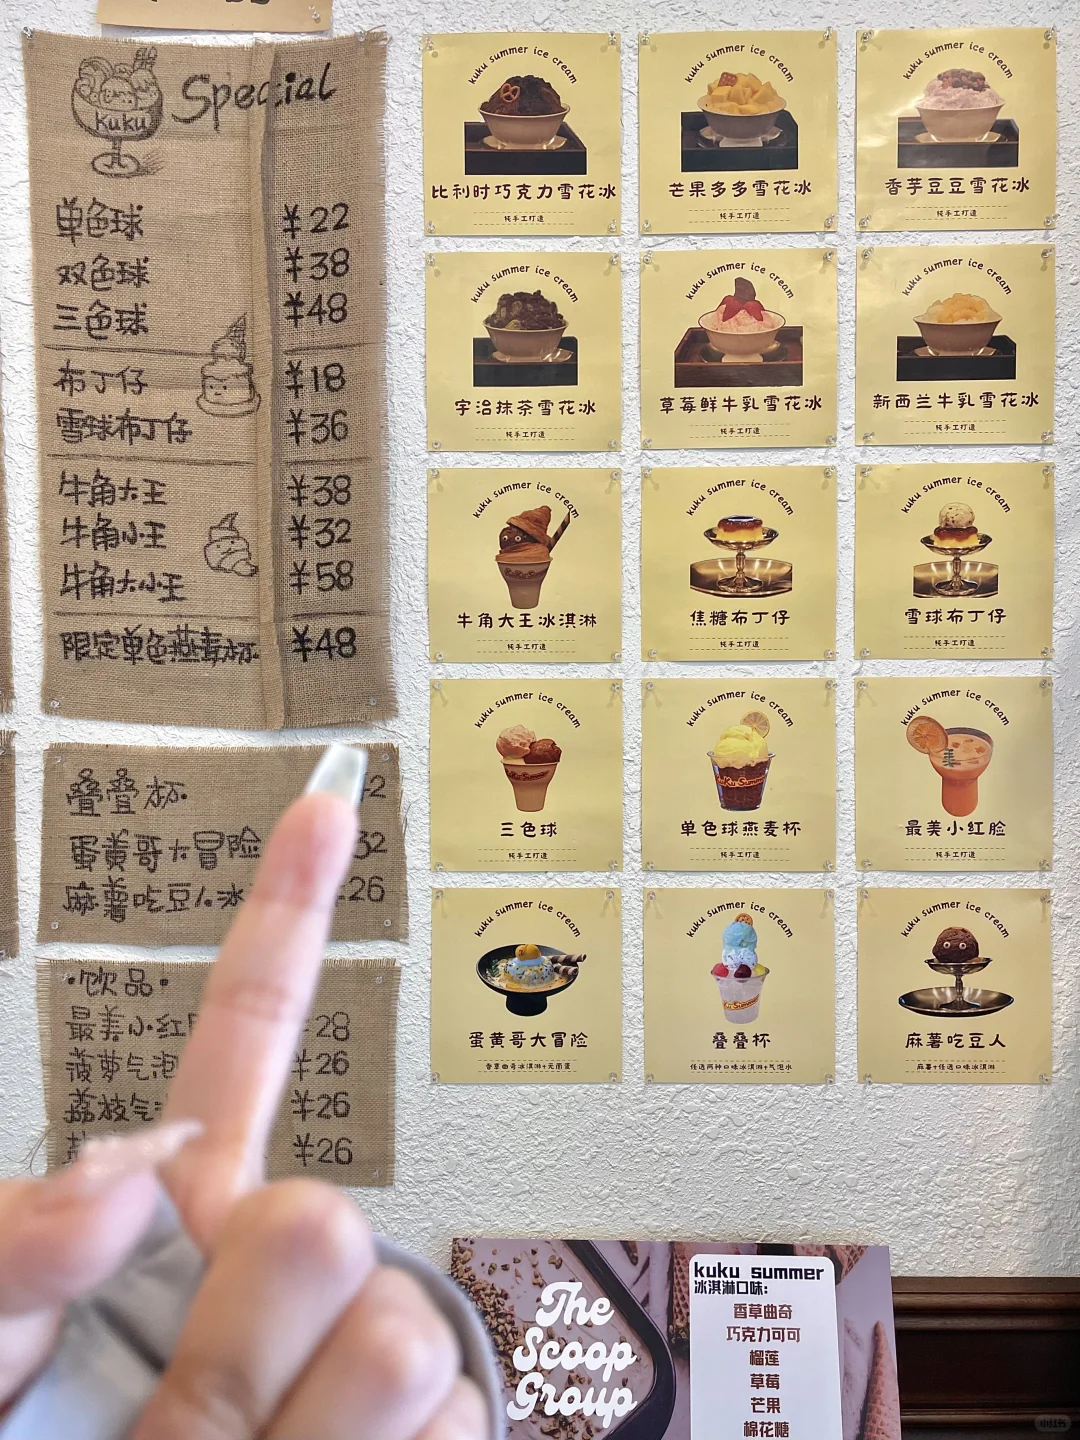 kuku
Special
单色球 ¥22
双色球 ¥38
三色球 ¥48
布丁仔 ¥18
雪球布丁仔 ¥36
牛角大王 ¥38
牛角小王 ¥32
牛角大小王 ¥58
限定单色燕麦杯 ¥48
叠叠杯 2
蛋黄哥大冒险 32
麻薯吃豆人冰 26
·饮品·
最美小红 28
菠萝气泡 ¥26
荔枝气 ¥26
¥26
kuku summer ice cream
比利时巧克力雪花冰
纯手工打造
kuku summer ice cream
芒果多多雪花冰
纯手工打造
kuku summer ice cream
香芋豆豆雪花冰
纯手工打造
kuku summer ice cream
宇治抹茶雪花冰
纯手工打造
kuku summer ice cream
草莓鲜牛乳雪花冰
纯手工打造
kuku summer ice cream
新西兰牛乳雪花冰
纯手工打造
kuku summer ice cream
牛角大王冰淇淋
纯手工打造
kuku summer ice cream
焦糖布丁仔
纯手工打造
kuku summer ice cream
雪球布丁仔
纯手工打造
kuku summer ice cream
KuKu Summer
三色球
纯手工打造
kuku summer ice cream
KuKu Summer
单色球燕麦杯
纯手工打造
kuku summer ice cream
最美小红脸
纯手工打造
kuku summer ice cream
蛋黄哥大冒险
香草曲奇冰淇淋+元雨蛋
kuku summer ice cream
叠叠杯
任选两种口味冰淇淋+气泡水
kuku summer ice cream
麻薯吃豆人
麻薯+任选口味冰淇淋
The
Scoop
Group
kuku summer
冰淇淋口味:
香草曲奇
巧克力可可
榴莲
草莓
芒果
棉花糖
小红书